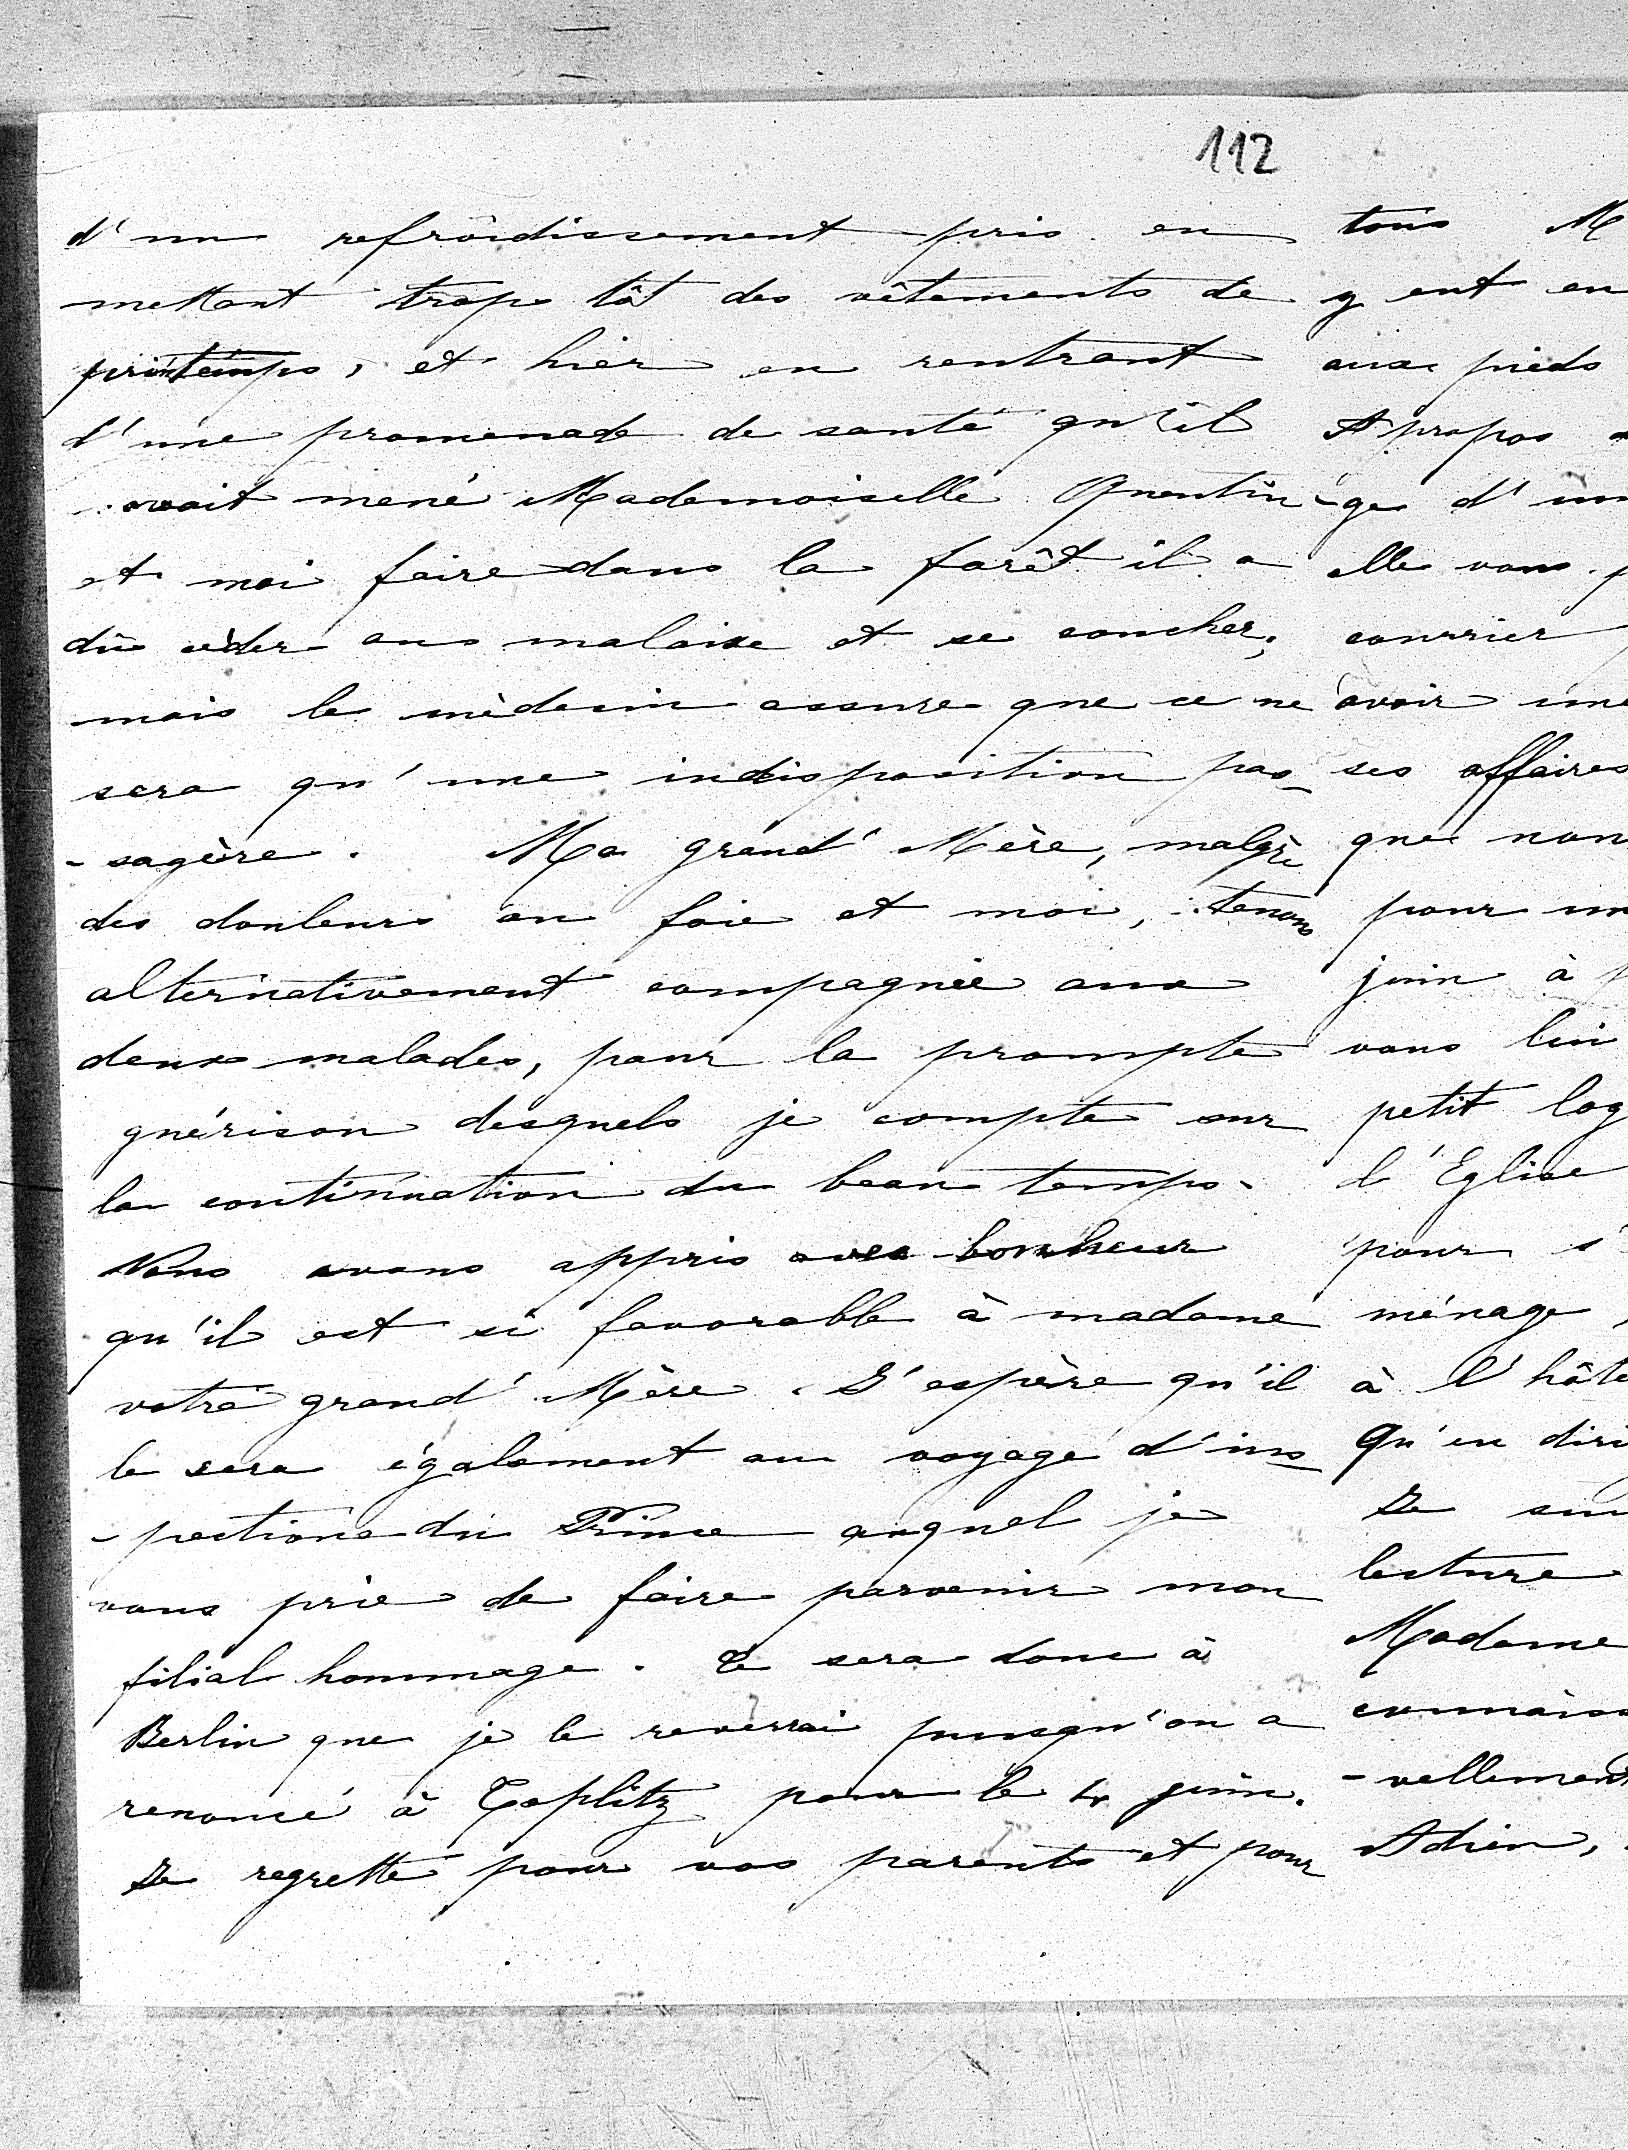 112
d'un refroidissement pris en
mettant trop tôt des vêtements de
printemps, et hier en rentrant
d'une promenade de santé qu'il
avait mené Mademoiselle Quentin
et moi faire dans la forêt il a
dû céder au malaise et se coucher;
mais le médecin assure que ce ne
sera qu'une indisposition pas-
-sagère. Ma grand' Mère, malgré
des douleurs au foie et moi, tenons
alternativement compagnie aux
deux malades, pour la prompte
guérison desquels je compte sur
la continuation du beau temps.
Nous avons appris avec bonheur
qu'il est si favorable à madame
votre grand' Mère. J'espère qu'il
le sera également au voyage d'ins-
-pections du Prince auquel je
vous prie de faire parvenir mon
filial hommage. Ce sera donc à
Berlin que je le reverrai puisqu'on a
renoncé à Toeplitz pour le 4 juin.
Je regrette pour vos parents et pour
tous M
y ent en
aux pieds
A propos
-ge d'un
elle vous
courrier
avoir une
ses affaires
que non
pour un
juin à
vous lui
petit log
l'Eglise
pour s'
ménage,
à l'hôte
Qu'en diri
Je
lecture
Madame
connaiss
-vellement
Adieu,